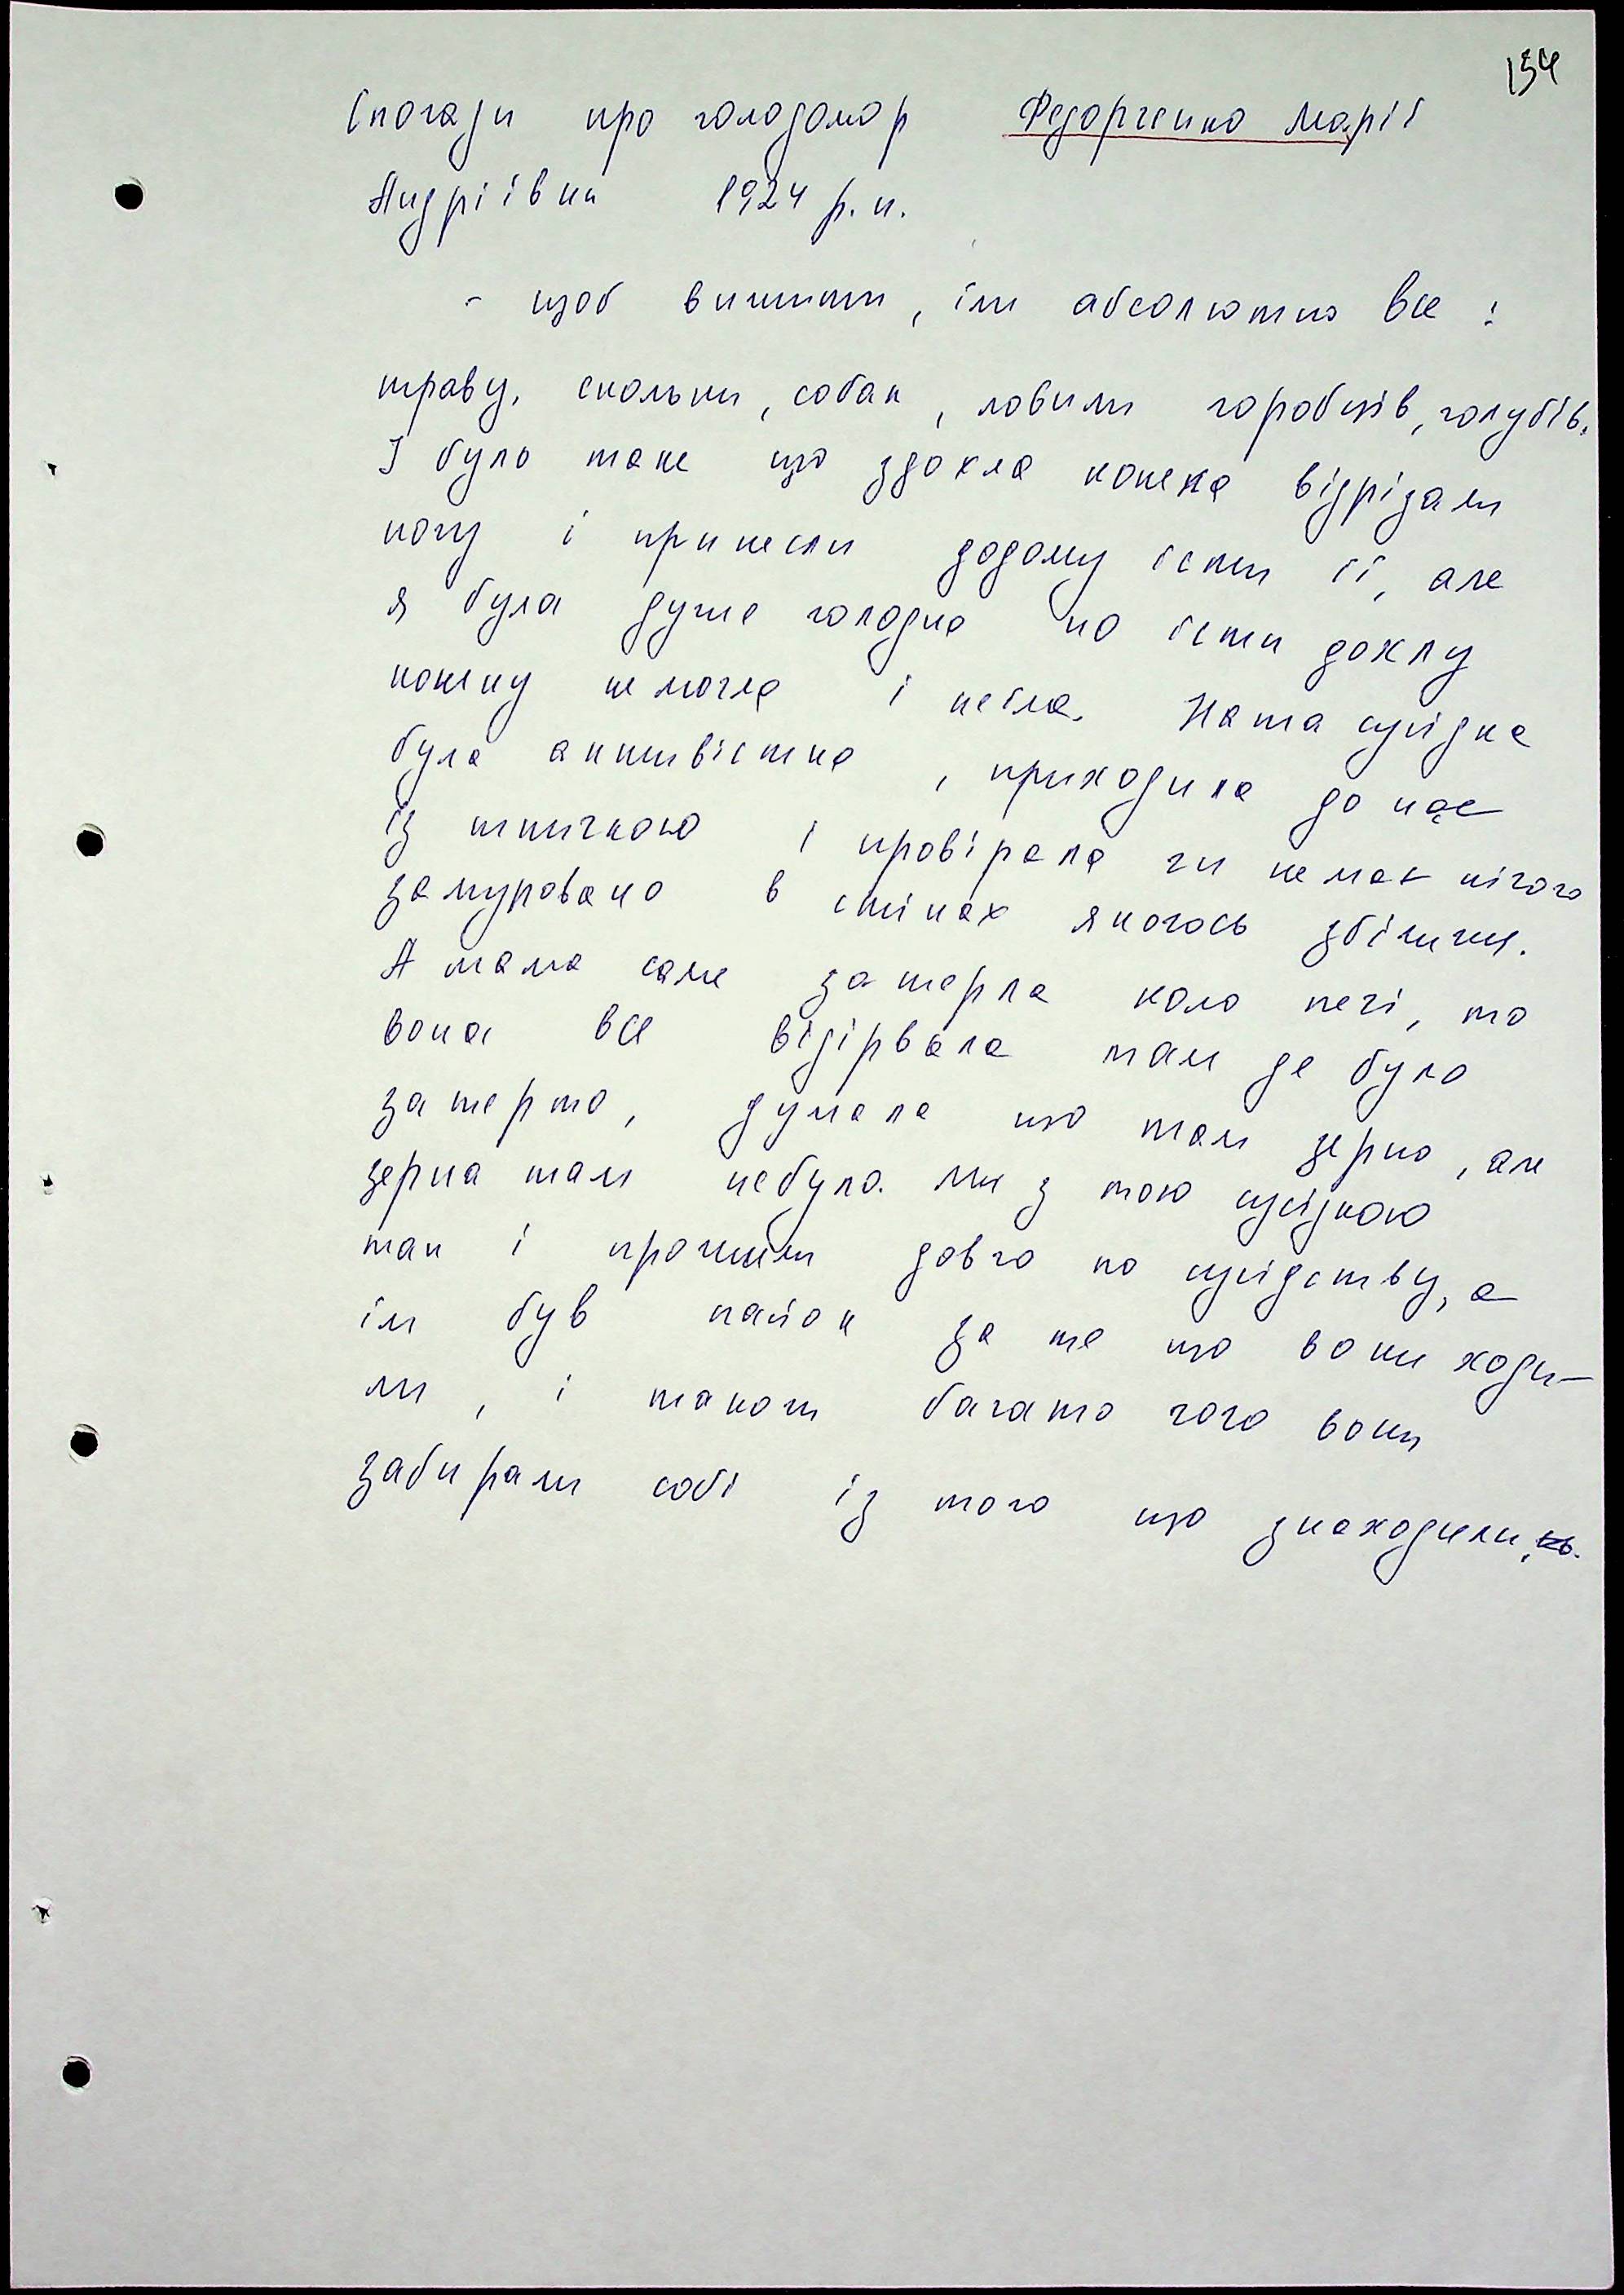 154
Спогади про голодомор Федорченко Марії
Андріївни 1924 р.н.
- щоб вижити, їли абсолютно все :
траву, скойки, собак, ловили горобців, голубів.
І було таке що здохла коняка відрізали
ногу і принесли додому їсти її, але
я була дуже голодна но їсти дохлу
коняку не могла і неїла. Наша сусідка
була активістка, приходила до нас
із шпичкою і провіряла чи немає нічого
замуровано в стінах якогось збіжжя.
А мама саме затерла коло печі, то
вона все відірвала там де було
затерто, думала що там зерно, але
зерна там небуло. Ми з тою сусідкою
так і прожили довго по сусідству, а
їм був пайок за те що вони ходи-
ли, і також багато чого вони
забирали собі із того що знаходили.